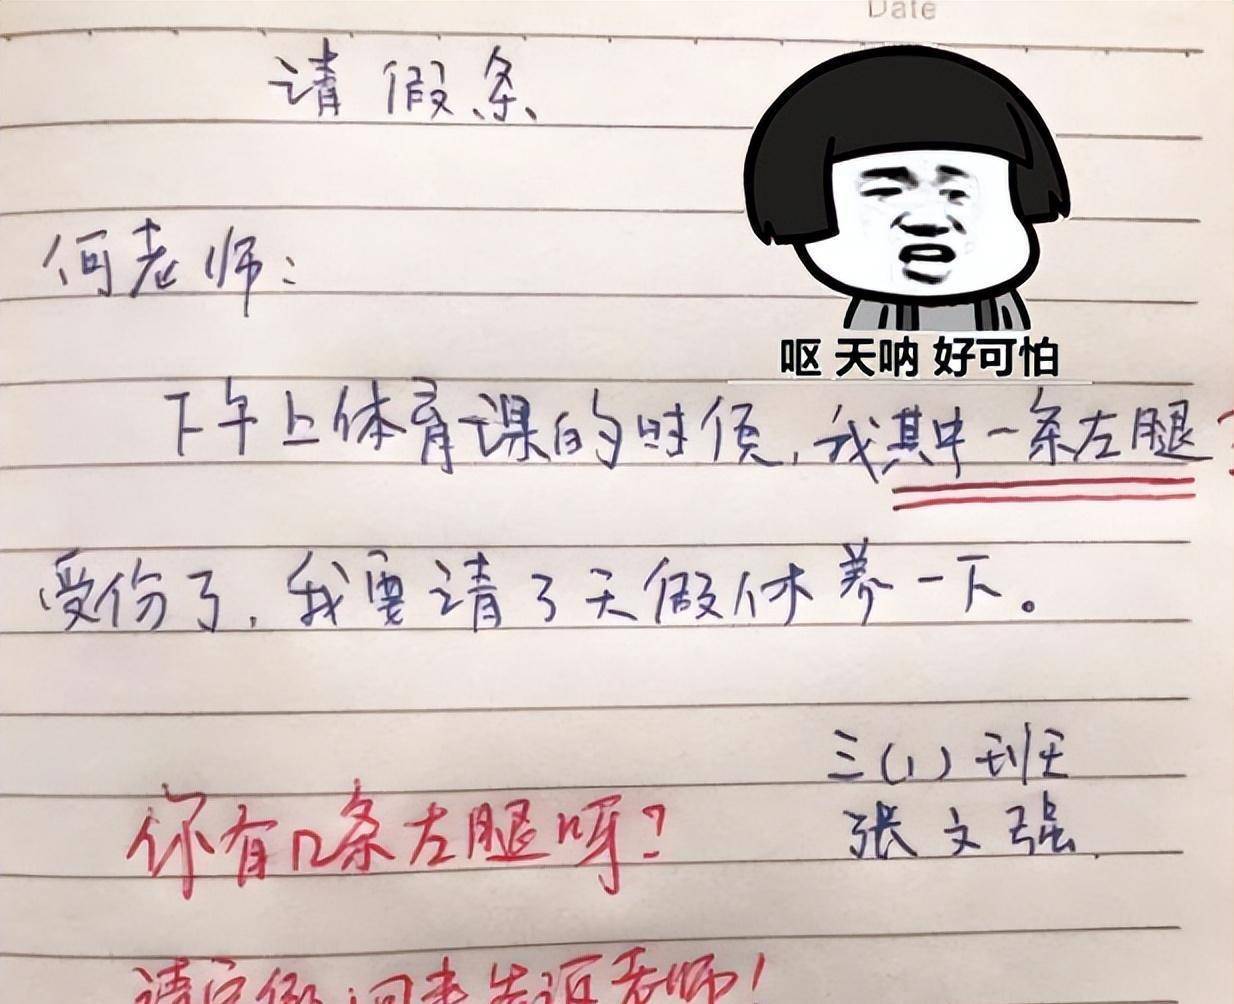 Date
请假条
何老师：
呕 天呐 好可怕
下午上体育课的时候，我其中一条左腿?
受伤了，我要请3天假休养一下。
三（1）班
张文强
你有几条左腿呀？
请完假，回来告诉老师！